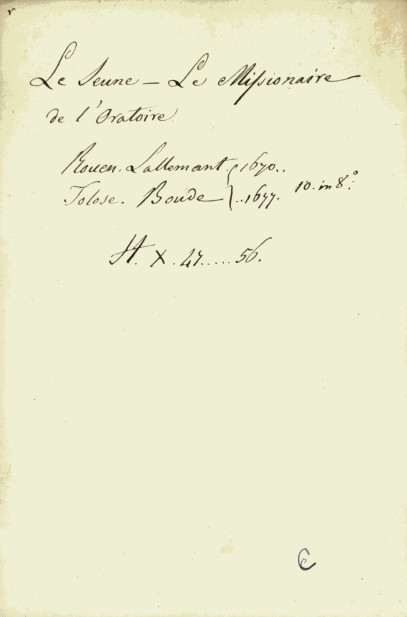 Le Jeune — Le Missionaire
de l'Oratoire
Rouen. Lallemant. 1670..
Tolose. Boude }..1677. 10. in 8.º
H. X. 47.....56.
C